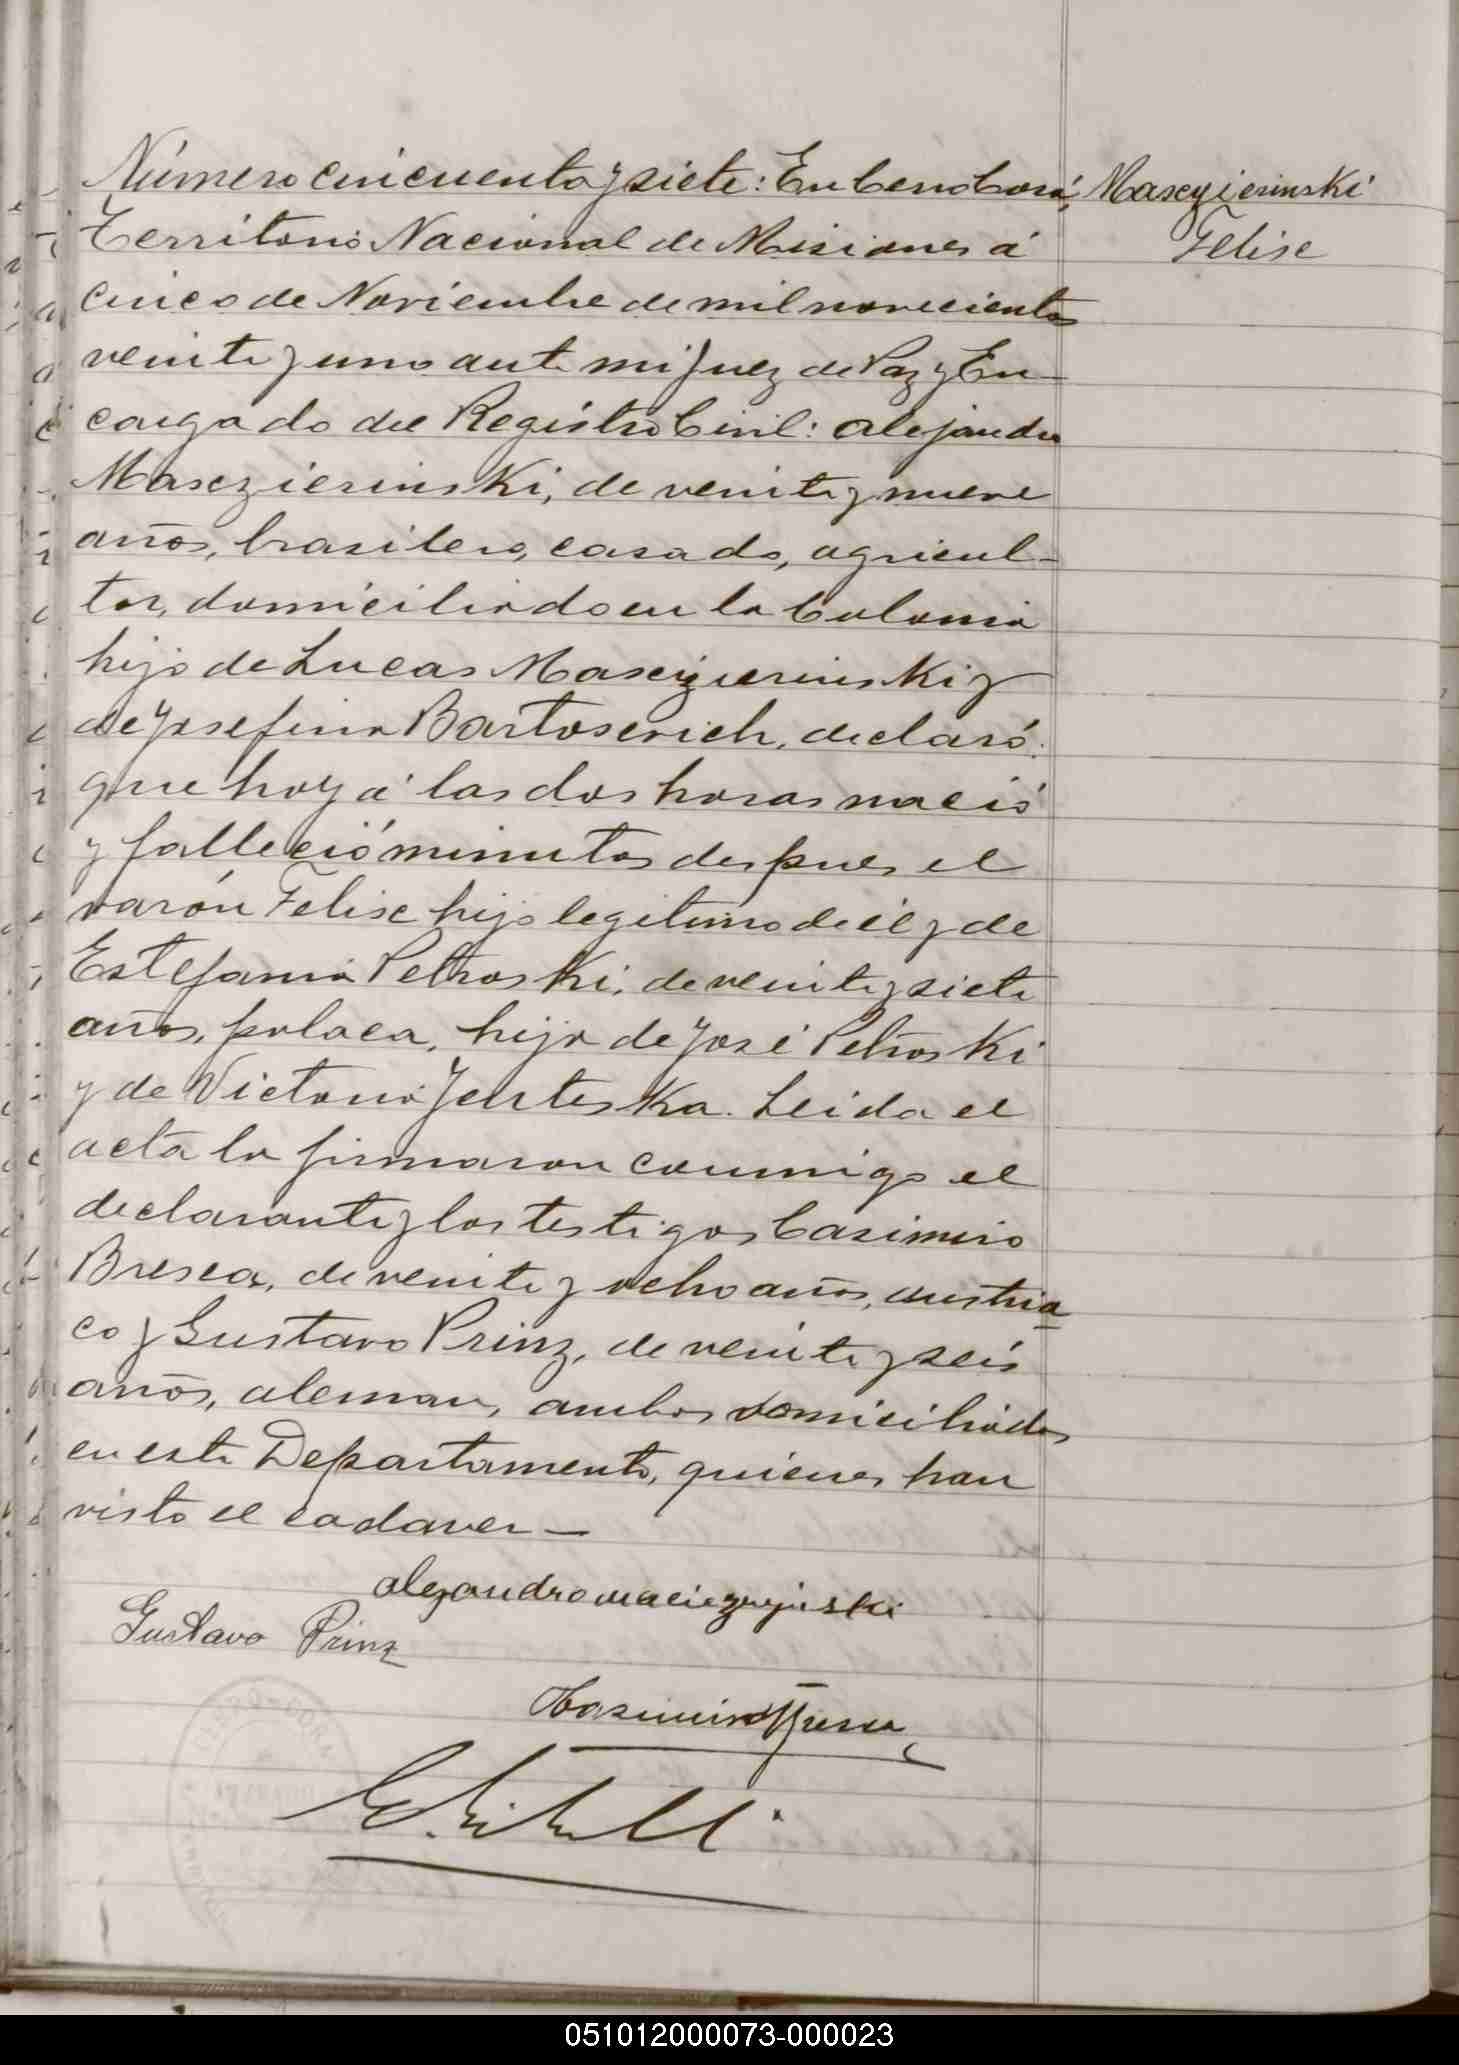 Número cincuenta y siete: En Cerro Corá,
Territorio Nacional de Misiones á
cinco de Noviembre de mil novecientos
veinte y uno ante mi Juez de Paz y En-
cargado del Registro Civil: Alejandro
Masczierinski, de veinte y nueve
años, brasilero, casado, agricul-
tor, domiciliado en la Colonia
hijo de Lucas Masczierinski y
de Josefina Bartoserich, declaró:
que hoy á las dos horas nació
y falleció minutos despues el
varón Felise hijo legitimo de él y de
Estefania Petroski, de veinte y siete
años, polaca, hija de José Petroski
y de Victoria Jenteska. Leida el
acta la firmaron conmigo el
declarante y los testigos Casimiro
Bresca, de veinte y ocho años, austria
co y Gustavo Prinz, de veinte y seis
años, aleman, ambos domiciliados
en este Departamento, quienes han
visto el cadaver —
Masczierinski
Felise
Alejandro
Gustavo Prinz
Casimiro
CERRO-CORA
051012000073-000023